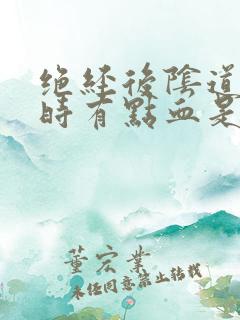 絕經後陰道
時有點血是
董宏業
未經同意禁止轉載